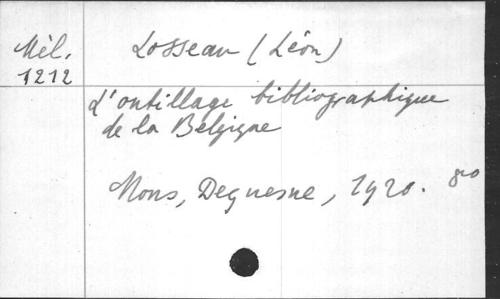 Mél. Losseau (Léon)
1212
L'outillage bibliographique
de la Belgique
Mons, Dequesne, 1920. 8-o